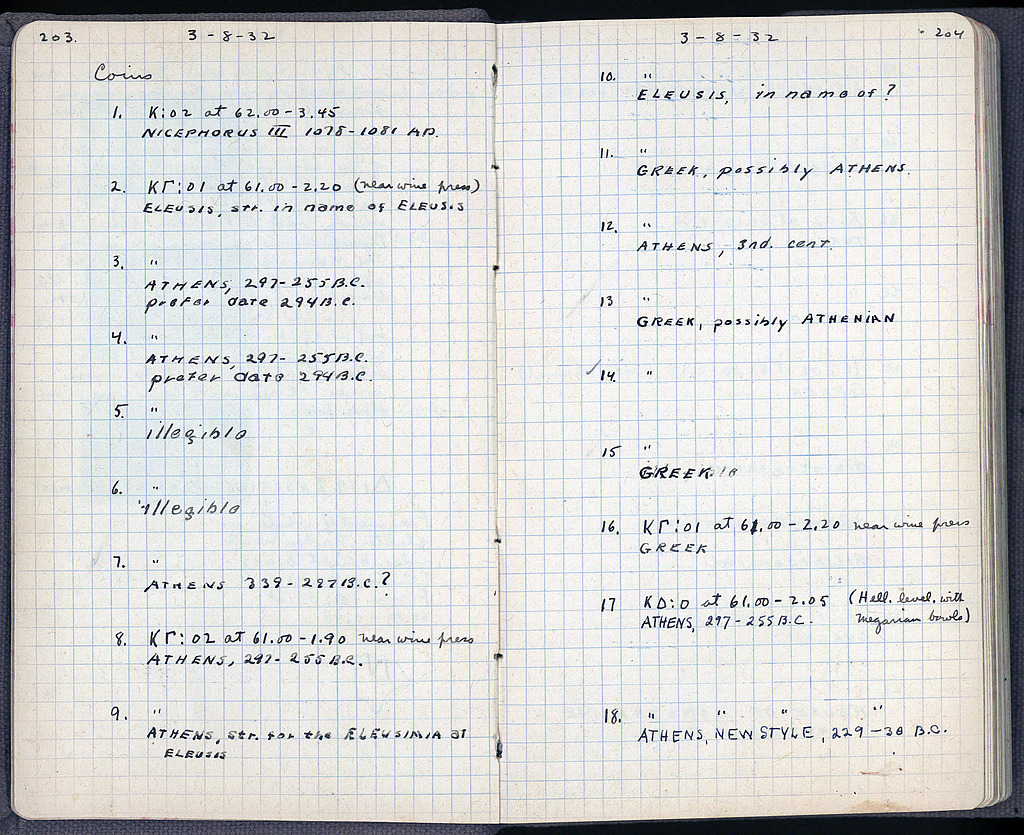 203.
3-8-32
Coins
1. K:02 at 62.00-3.45
NICEPHORUS III 1078-1081 AD.
2. KΓ:01 at 61.00-2.20 (near wine press)
ELEUSIS, str. in name of ELEUSIS
3. "
ATHENS, 297-255B.C.
prefer date 294B.C.
4. "
ATHENS, 297-255B.C.
prefer date 294B.C.
5. "
illegible
6. "
illegible
7. "
ATHENS 339-297B.C.?
8. KΓ:02 at 61.00-1.90 near wine press
ATHENS, 297-255B.C.
9. "
ATHENS, str. for the ELEUSINIA at
ELEUSIS
3-8-32
204
10. "
ELEUSIS, in name of?
11. "
GREEK, possibly ATHENS.
12. "
ATHENS, 3rd. cent.
13 "
GREEK, possibly ATHENIAN
14. "
15 "
GREEK.
16. KΓ:01 at 61.00-2.20 near wine press
GREEK
17 KΔ:0 at 61.00-2.05 (Hell. level. with
ATHENS, 297-255B.C. Megarian bowls)
18. " " " "
ATHENS, NEW STYLE, 229-30 B.C.